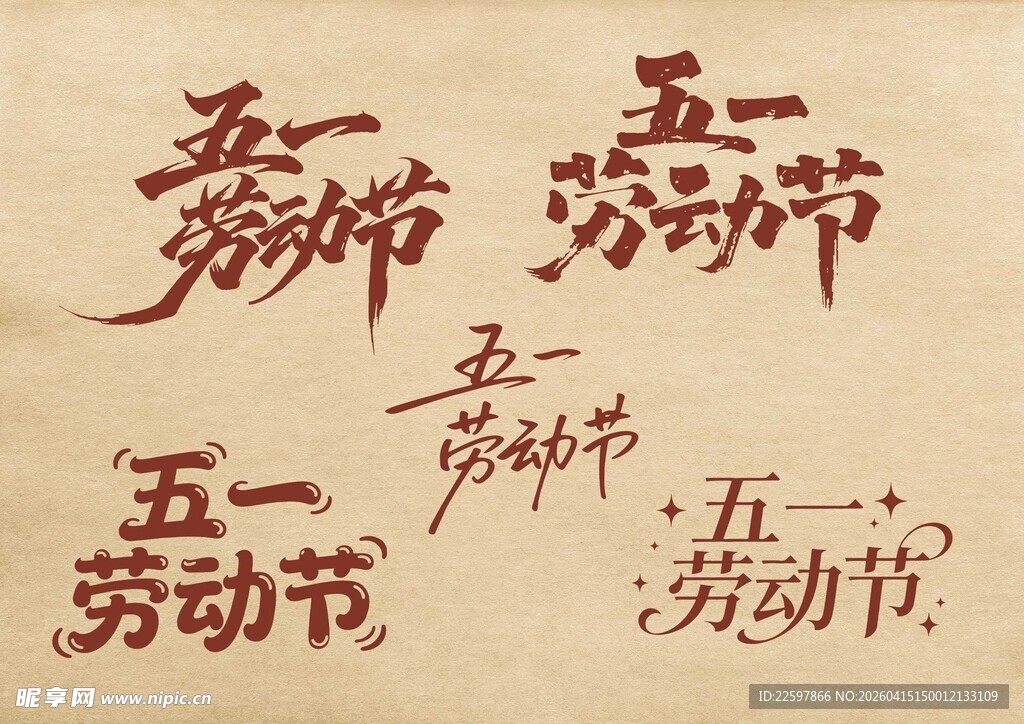 五一
劳动节
五一
劳动节
五一
劳动节
五一
劳动节
五一
劳动节
昵享网 www.nipic.cn
ID:22597866 NO:20260415150012133109